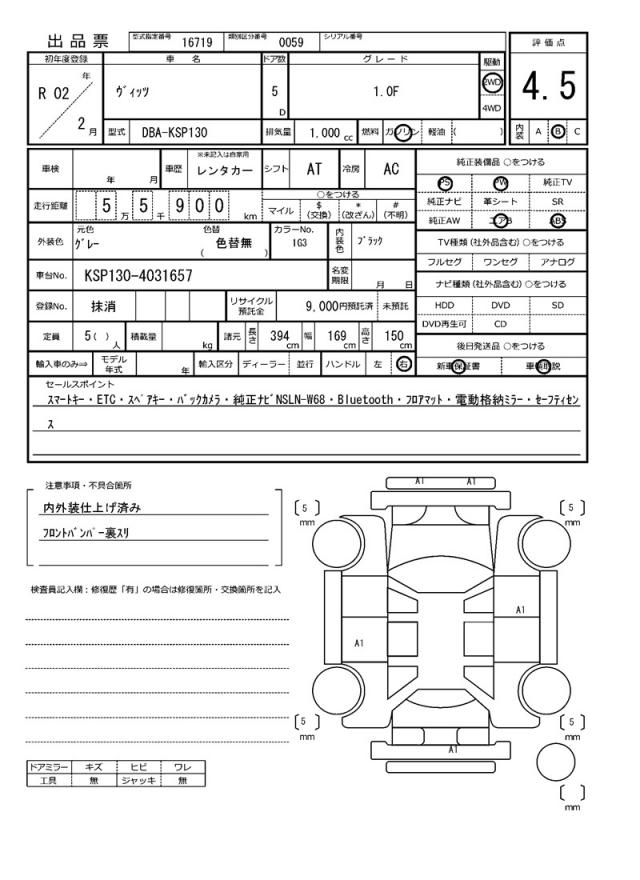 出品票 型式指定番号 16719 類別区分番号 0059 シリアル番号
評価点
4.5
内装 A B C
初年度登録 車名 ドア数 グレード 駆動
R 02 年 2 月 ヴィッツ 5 D 1.0F 2WD 4WD
型式 DBA-KSP130 排気量 1.000 cc 燃料 ガソリン 軽油 ( )
車検 年 月 車歴 ※未記入は自家用 レンタカー シフト AT 冷房 AC
走行距離 5 万 5 千 9 0 0 km ○をつける マイル $ (交換) * (改ざん) # (不明)
外装色 元色 グレー 色替 色替無 ( ) カラーNo. 1G3 内装色 ブラック
車台No. KSP130-4031657 名変期限 月 日
登録No. 抹消 リサイクル預託金 9,000円預託済 未預託
定員 5( ) 人 積載量 kg 諸元 長さ 394 cm 幅 169 cm 高さ 150 cm
輸入車のみ⇒ モデル年式 年 輸入区分 ディーラー 並行 ハンドル 左 右
純正装備品 ○をつける
PS PW 純正TV
純正ナビ 革シート SR
純正AW エアB ABS
TV種類 (社外品含む) ○をつける
フルセグ ワンセグ アナログ
ナビ種類 (社外品含む) ○をつける
HDD DVD SD
DVD再生可 CD
後日発送品 ○をつける
新車保証書 車輌取説
セールスポイント
スマートキー・ETC・スペアキー・バックカメラ・純正ナビNSLN-W68・Bluetooth・フロアマット・電動格納ミラー・セーフティセン
ス
注意事項・不具合箇所
内外装仕上げ済み
フロントバンパー裏スリ
検査員記入欄：修復歴「有」の場合は修復箇所・交換箇所を記入
ドアミラー キズ ヒビ ワレ
工具 無 ジャッキ 無
A1 A1
5 mm 5 mm
A1
A1
5 mm 5 mm
A1
mm